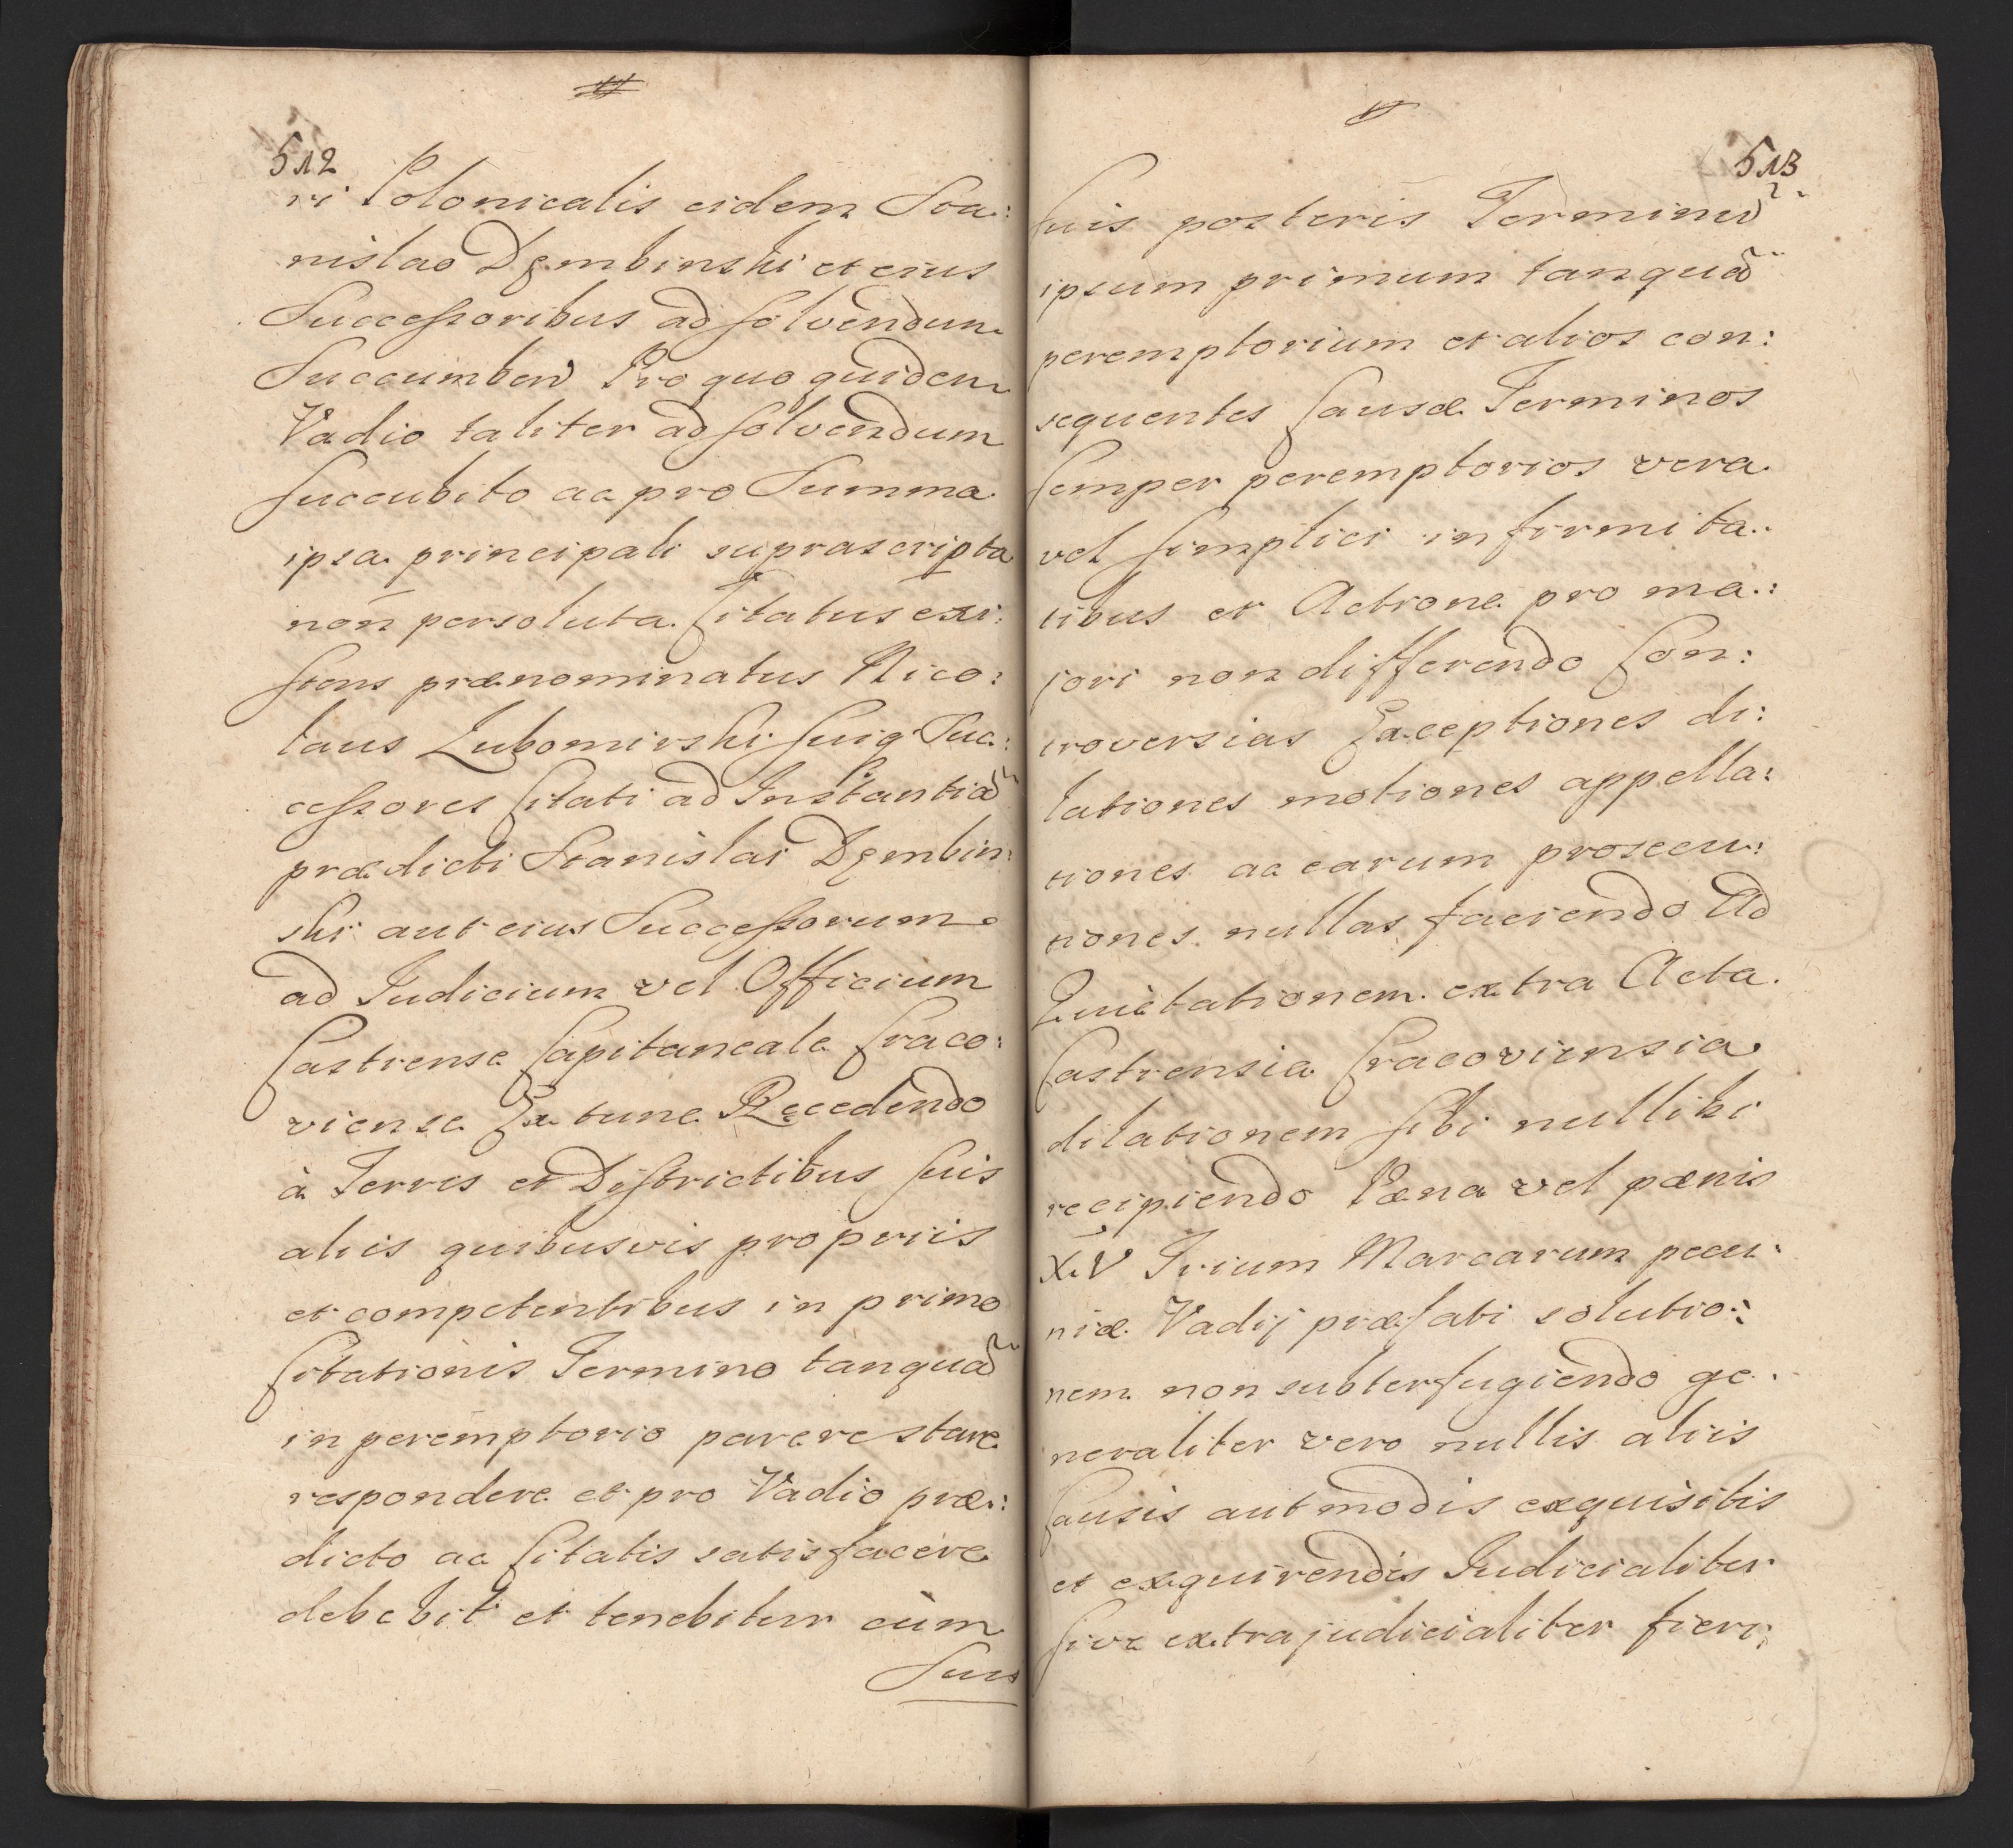 512
ri Polonicalis eidem Sta:
nislao Dęmbinski et eius
Successoribus ad solvendum
Succumben͂ Pro quo quidem
Vadio taliter ad solvendum
succubito ac pro Summa
ipsa principali suprascripta
non persoluta Citatus exi:
stens prænominatus Nico:
laus Lubomirski suiq Suc:
cessores Citati ad Instantia͂
prædicti Stanislai Dęmbin:
ski aut eius Successorum
ad Judicium vel Officium
Castrense Capitaneale Craco:
viense Ex tunc Recedendo
à Terris et Districtibus suis
aliis quibusvis propriis
et competentibus in primo
Citationis Termino tanqua͂
in peremptorio parere stare
respondere et pro Vadio præ:
dicto ac Citatis satisfacere
debebit et tenebitur cùm
Suis
513
suis posteris Terminu͂
ipsum primum tanqua͂
peremptorium et alios con:
sequentes Causæ Terminos
semper peremptorios vera
vel simplici infirmita:
tibus et Actione pro ma:
iori non differendo Con:
troversias Exceptiones di:
lationes motiones appella:
tiones ac earum prosecu:
tiones nullas faciendo Ad
Quietationem extra Acta
Castrensia Cracoviensia
dilationem sibi nullibi
recipiendo Pæna vel pænis
XIV Trium Marcarum pecu:
niæ Vadij præfati solutio:
nem non subterfugiendo ge:
neraliter vero nullis aliis
Causis aut modis exquisitis
et exquirendis Judicialiter
sive extrajudicialiter fieri: